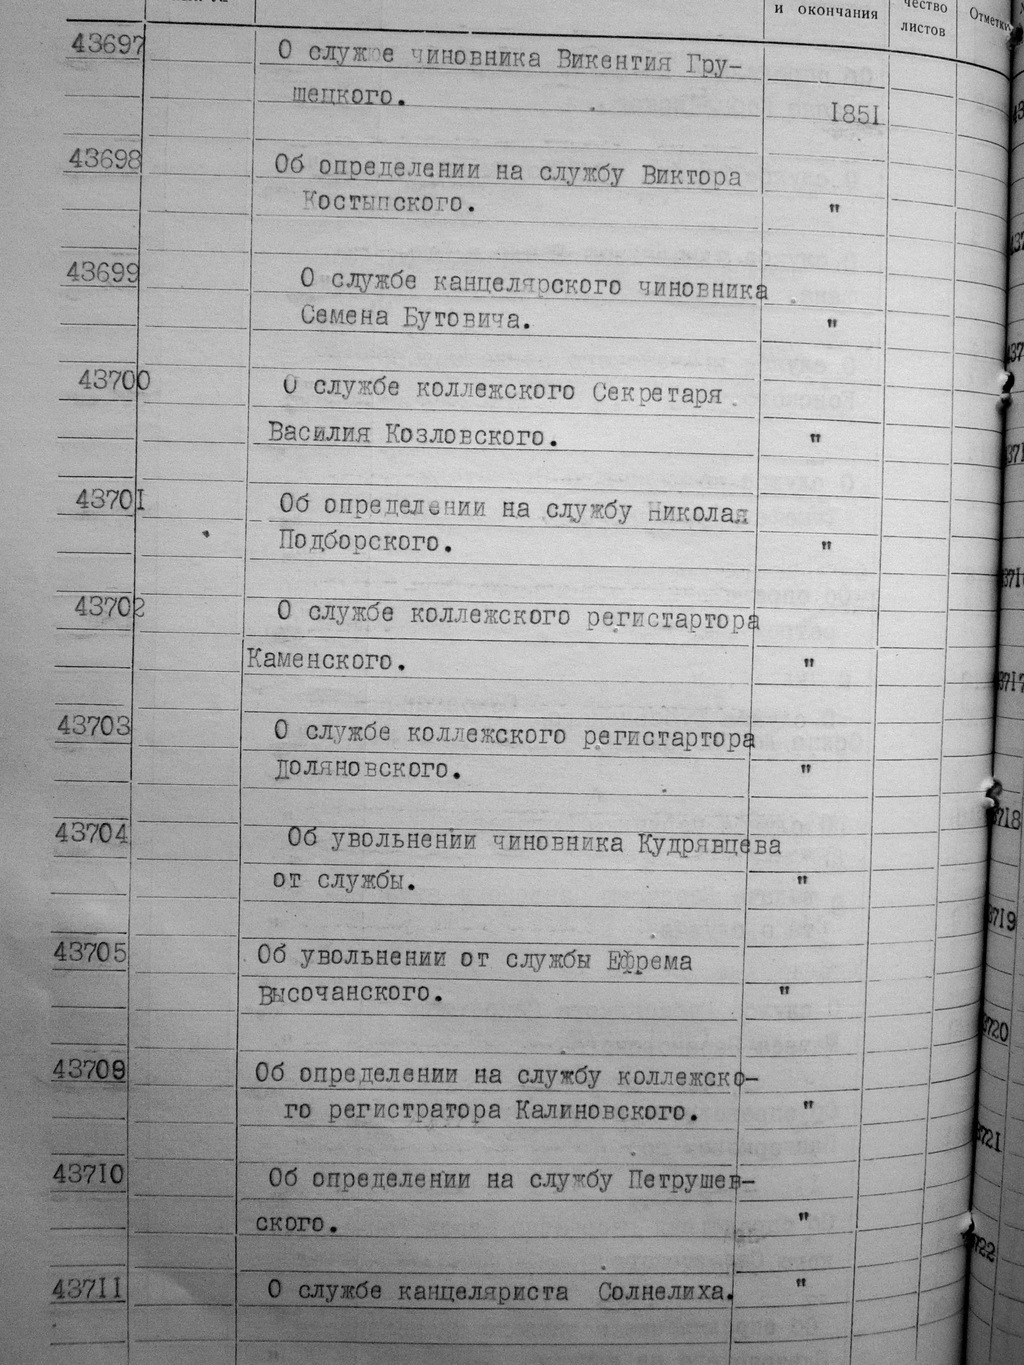 и окончания
чество
листов
Отметки
43697
О службе чиновника Викентия Гру-
шецкого.
1851
43698
Об определении на службу Виктора
Костыпского.
"
43699
О службе канцелярского чиновника
Семена Бутовича.
"
43700
О службе коллежского Секретаря
Василия Козловского.
"
43701
Об определении на службу Николая
Подборского.
"
43702
О службе коллежского регистартора
Каменского.
"
43703
О службе коллежского регистартора
Доляновского.
"
43704
Об увольнении чиновника Кудрявцева
от службы.
"
43705
Об увольнении от службы Ефрема
Высочанского.
"
43709
Об определении на службу коллежско-
го регистратора Калиновского.
"
43710
Об определении на службу Петрушев-
ского.
"
43711
О службе канцеляриста Солнелиха.
"